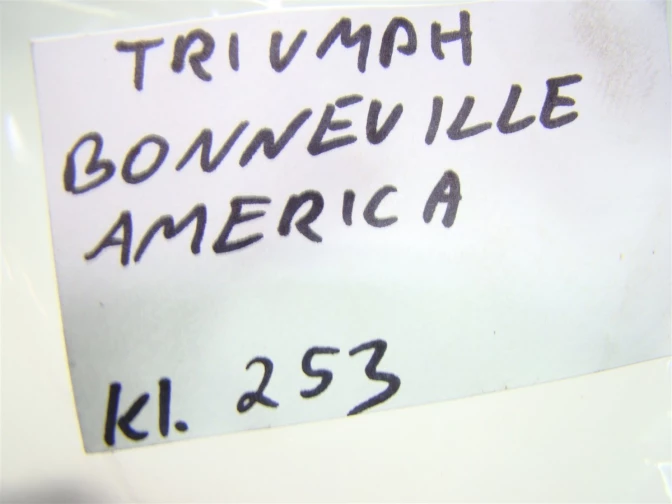 TRIUMPH
BONNEVILLE
AMERICA
Kl. 253